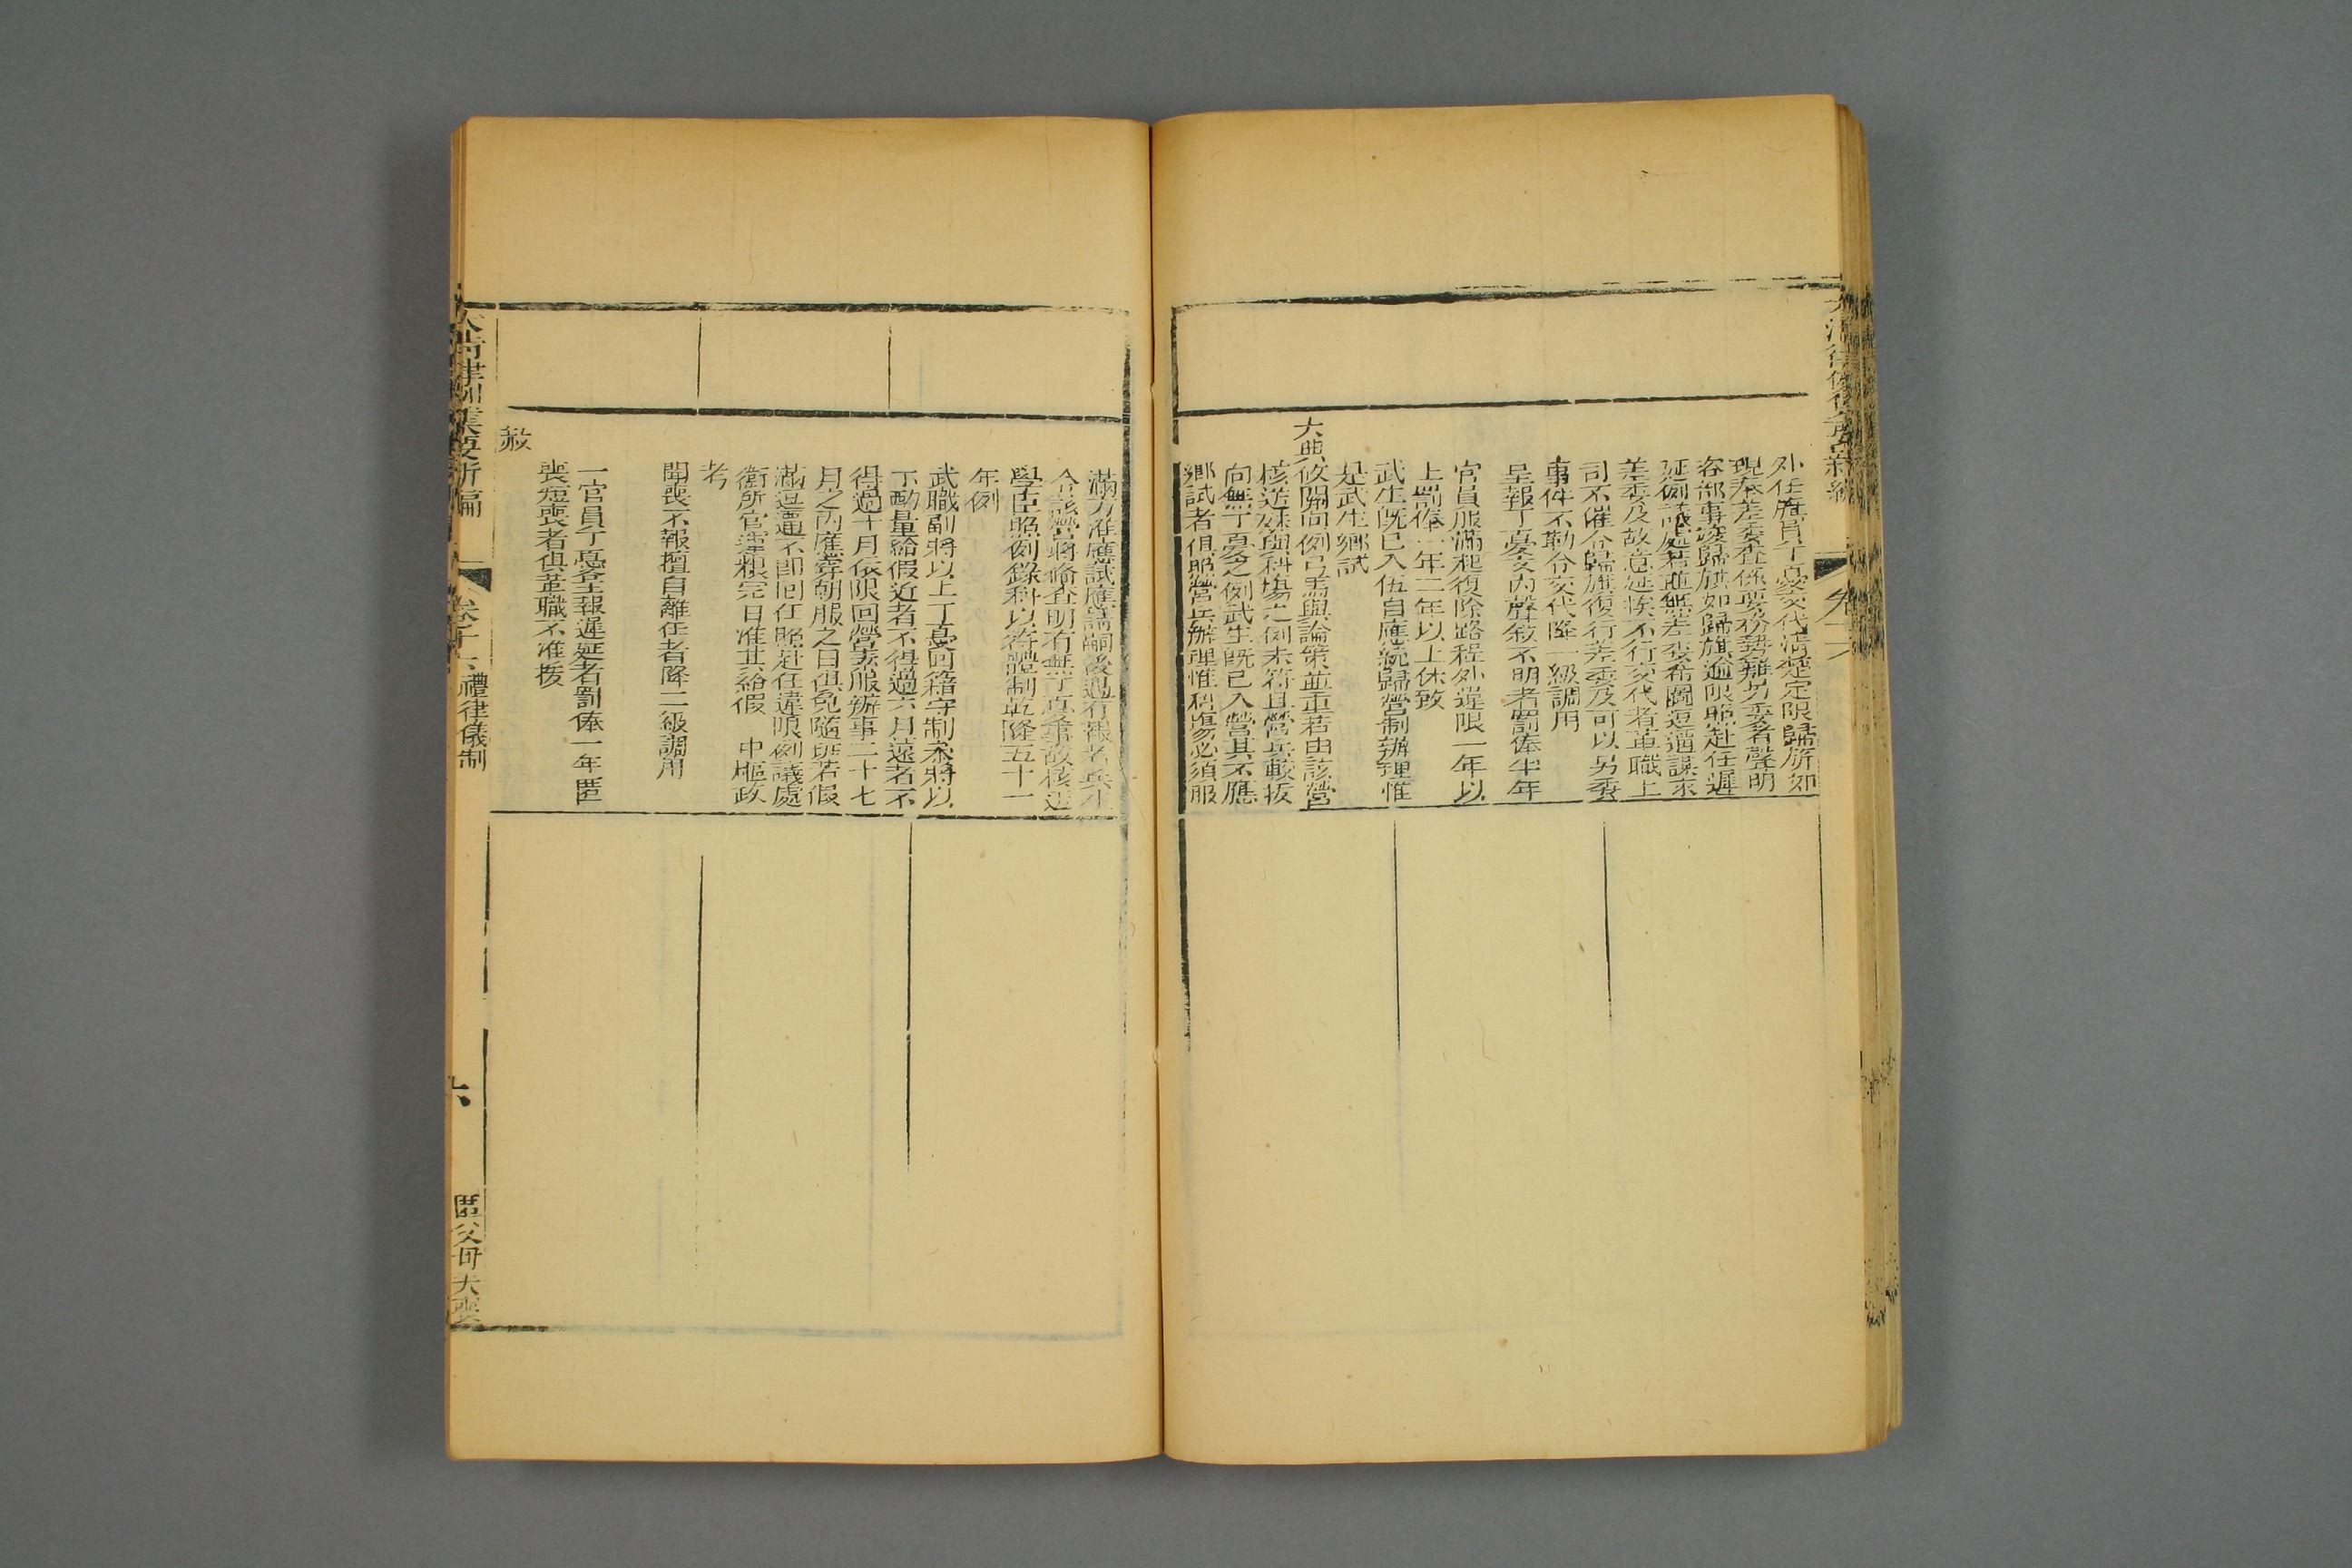 外任旗員丁憂交代清楚定限歸旂如
現奉差委查係要務勢難另委者聲明
咨部事竣歸旗如歸旗逾限照赴任遲
延例議處若並無差委希圖逗遛謀求
差委及故意延挨不行交代者革職上
司不催令歸旗復行差委及可以另委
事件不勒令交代降一級調用
呈報丁憂文內聲敘不明者罰俸半年
官員服滿起復除路程外遲限一年以
上罰俸一年二年以上休致
武生既已入伍自應統歸營制辦理惟
是武生鄉試
大典攸關向例弓馬與論策並重若由該營
核送殊與科場之例未符且營兵載拔
向無丁憂之例武生既已入營其不應
鄉試者俱照營兵辦理惟科塲必須服
滿方准應試應請嗣後遇有報考兵生
令該營將備查明有無丁憂事故核送
學臣照例錄科以符體制乾隆五十一
年例
武職副將以上丁憂回籍守制叅將以
下酌量給假近者不得過六月遠者不
得過十月依限回營素服辦事二十七
月之內應穿朝服之日俱免隨班若假
滿逗遛不即回任照赴任違限例議處
衛所官運糧完日准其給假 中樞政
考
聞喪不報擅自離任者降二級調用
一官員丁憂呈報遲延者罰俸一年匿
喪短喪者俱革職不准援
赦
卷十六 禮律儀制
六
匿父母夫喪